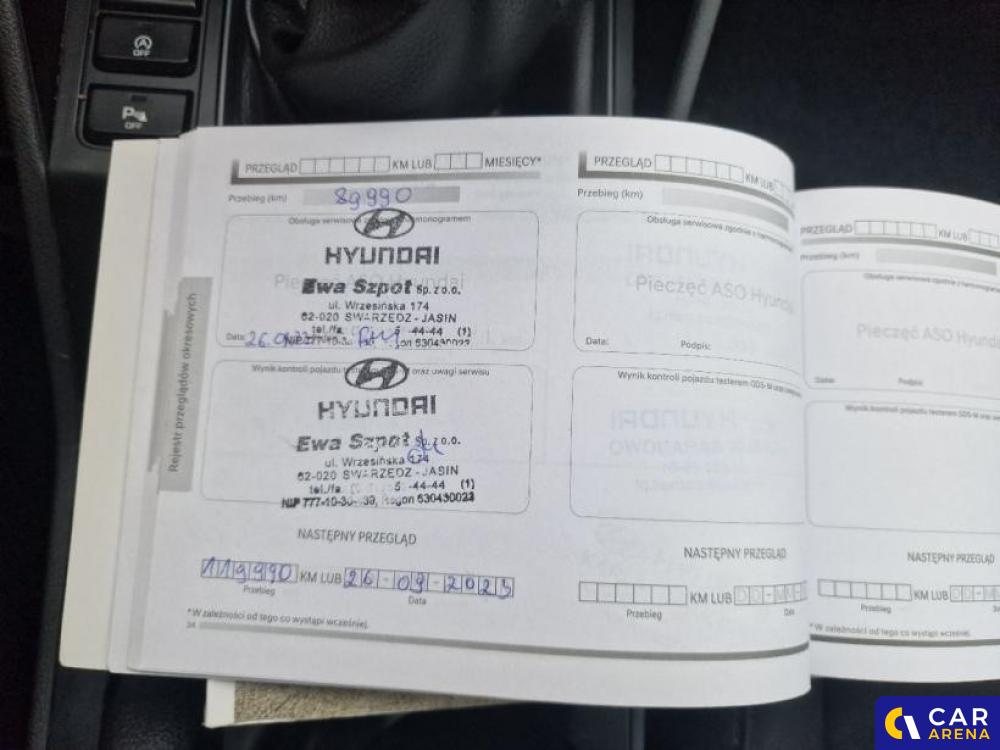 OFF
OFF
PRZEGLĄD KM LUB MIESIĘCY*
Przebieg (km) 89990
Obsługa serwisowa monogramem
HYUNDAI
Pieczęć ASO Hyundai
Ewa Szpot Sp. z o.o.
ul. Wrzesińska 174
62-020 SWARZĘDZ - JASIN
tel./fa 5 -44-44 (1)
Data: 26.09
NIP 777-10-3 gon 630430023
Wynik kontroli pojazdu oraz uwagi serwisu
HYUNDAI
Ewa Szpot Sp. z o.o.
ul. Wrzesińska 174
62-020 SWARZĘDZ - JASIN
tel./fa 5 -44-44 (1)
NIP 777-10-30- 39, Regon 630430023
NASTĘPNY PRZEGLĄD
119990 KM LUB 26-09-2023
Przebieg Data
*W zależności od tego co wystąpi wcześniej.
34
Rejestr przeglądów okresowych
PRZEGLĄD KM LUB
Przebieg (km)
Obsługa serwisowa zgodnie z harmonogramem
Pieczęć ASO Hyundai
Data: Podpis:
Wynik kontroli pojazdu testerem GDS-M oraz
NASTĘPNY PRZEGLĄD
KM LUB DD-MM
Przebieg Data
PRZEGLĄD KM LUB
Przebieg (km)
Obsługa serwisowa zgodnie z
Pieczęć ASO Hyundai
Data: Podpis:
Wynik kontroli pojazdu testerem GDS-M oraz
NASTĘPNY PRZEGLĄD
KM LUB DD-M
Przebieg
*W zależności od tego co wystąpi wcześniej.
CAR
ARENA